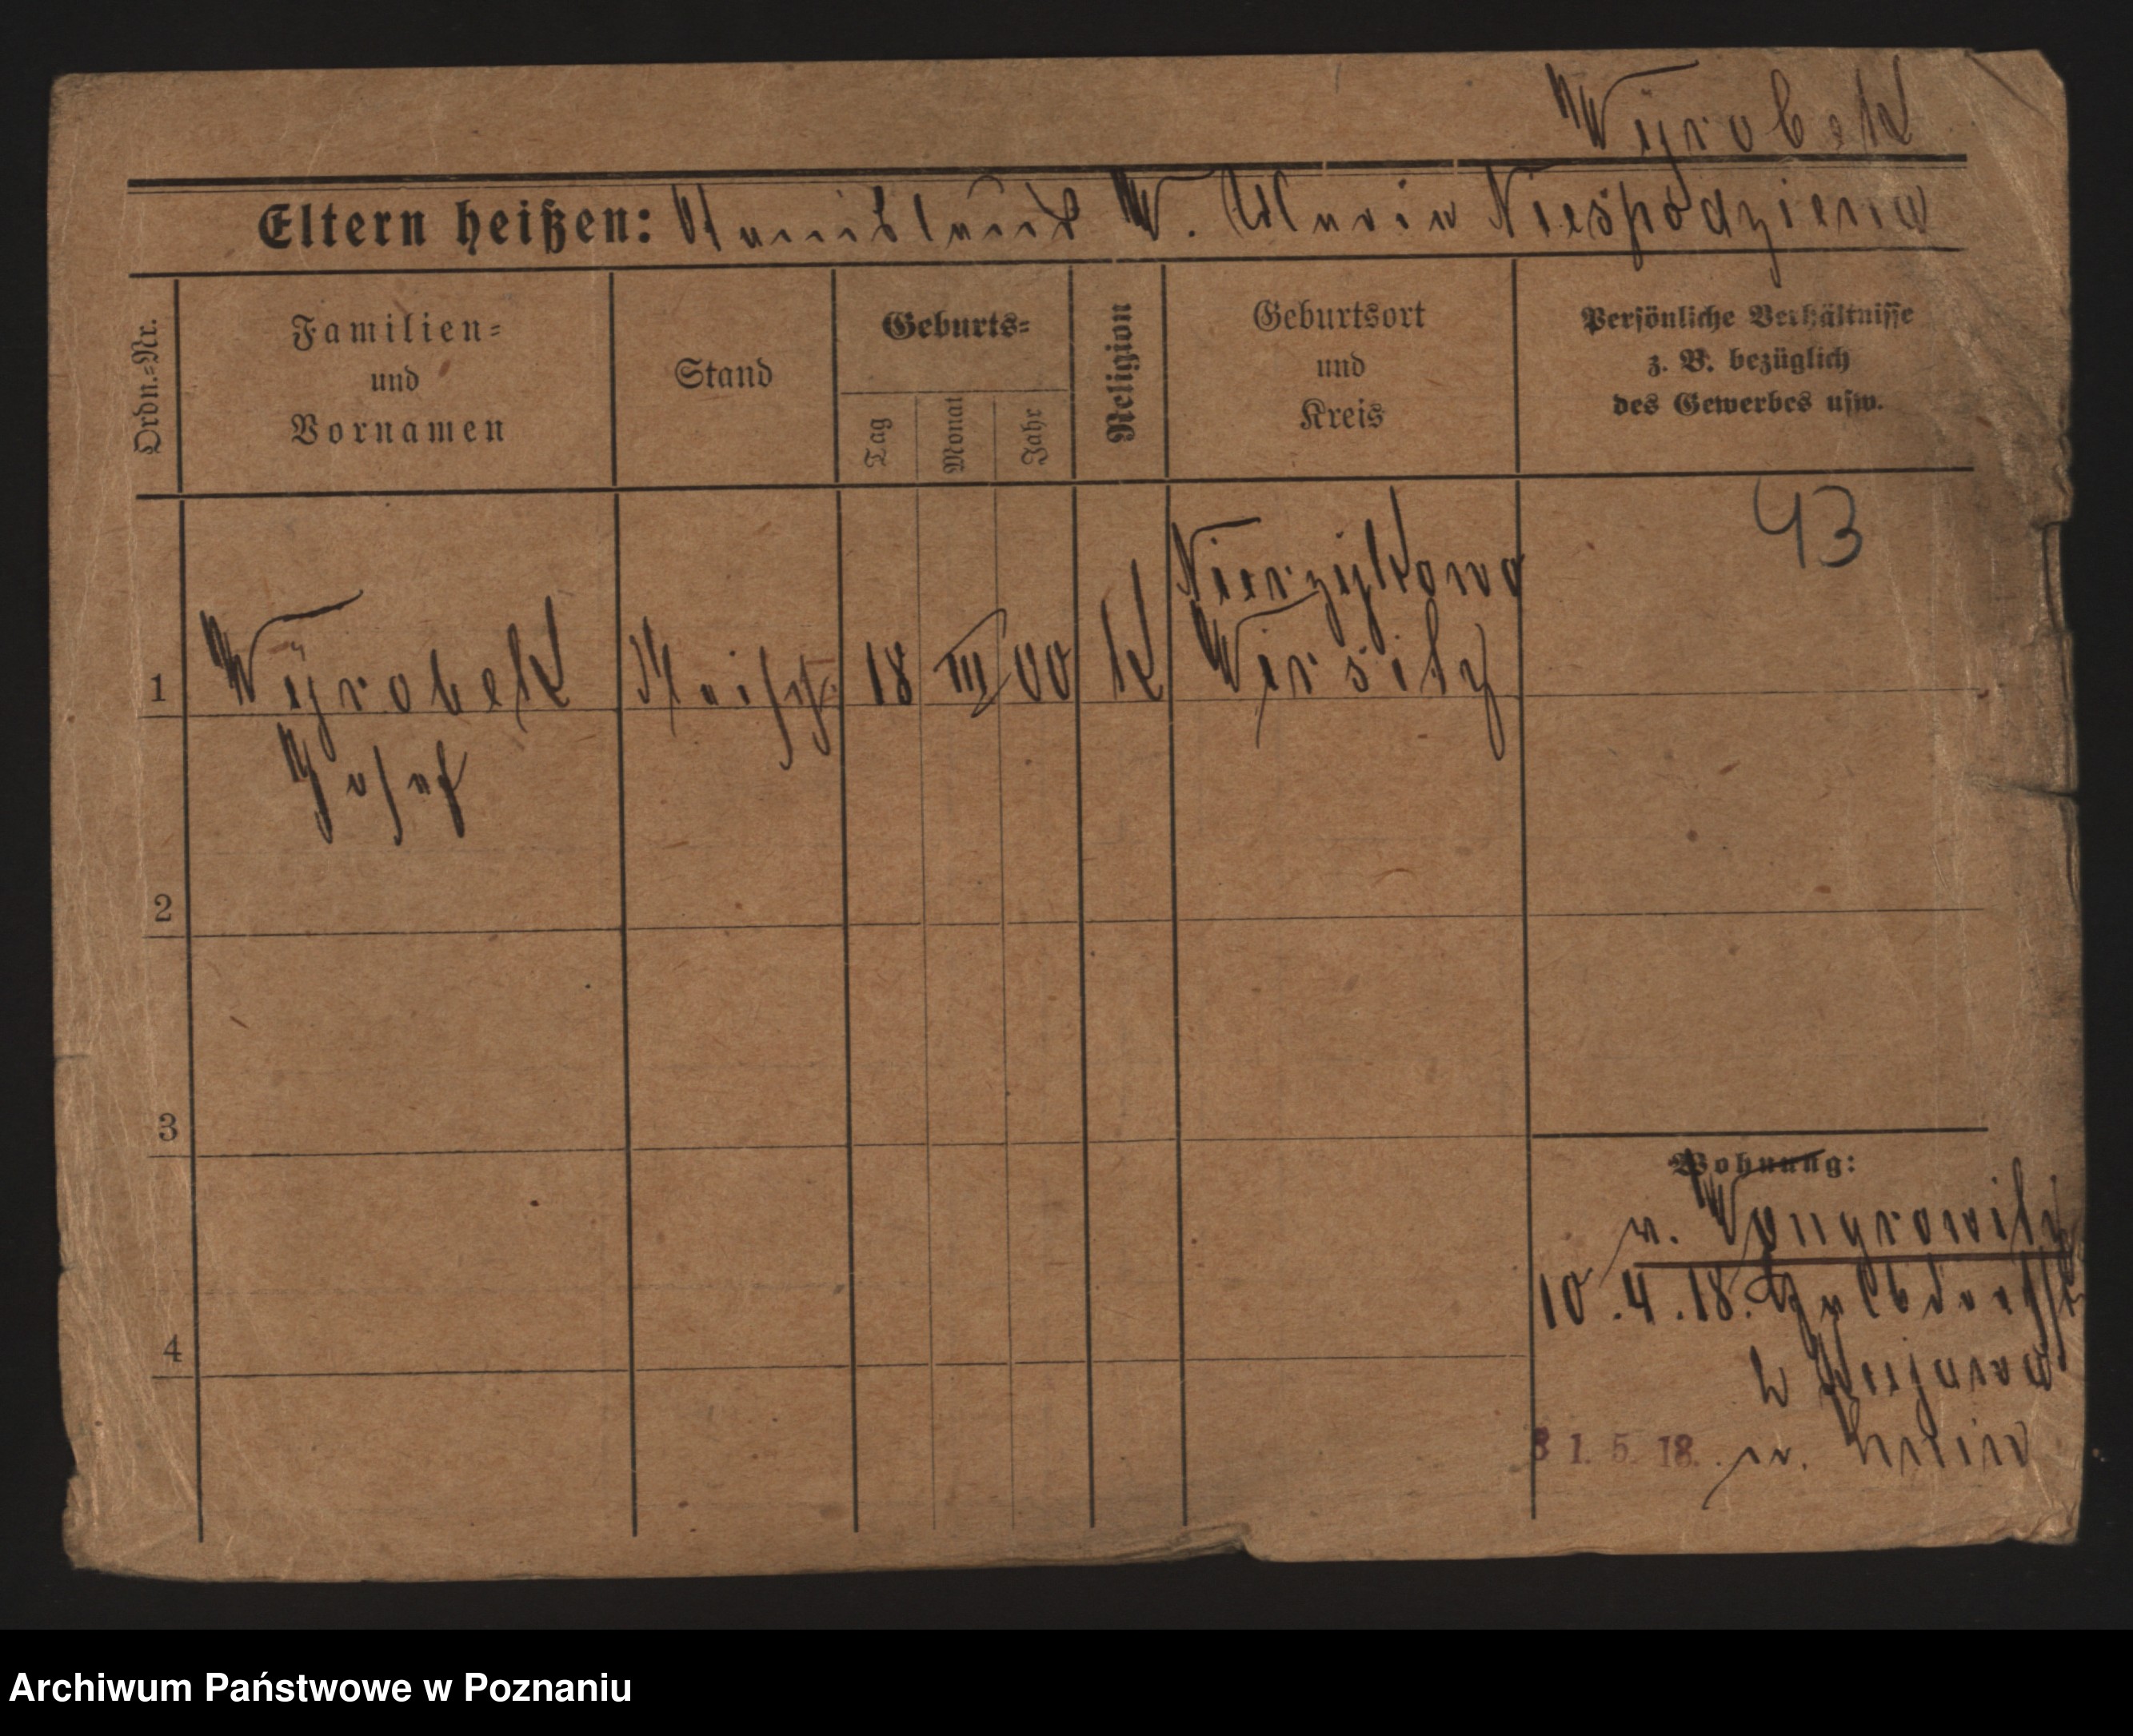 Wyrobek
Eltern heißen: Stanislaus W. Maria Niespodziena
Ordn.-Nr.
Familien- und Vornamen
Stand
Geburts-
Tag
Monat
Jahr
Religion
Geburtsort und Kreis
Persönliche Verhältnisse z. B. bezüglich des Gewerbes usw.
43
1
Wyrobek
Josef
18
III
00
K
Nierzykowo
Wirsitz
2
3
4
Wohnung:
v. Wongrowitz
10.4.18.
b
31.5.18. n. Znin
Archiwum Państwowe w Poznaniu